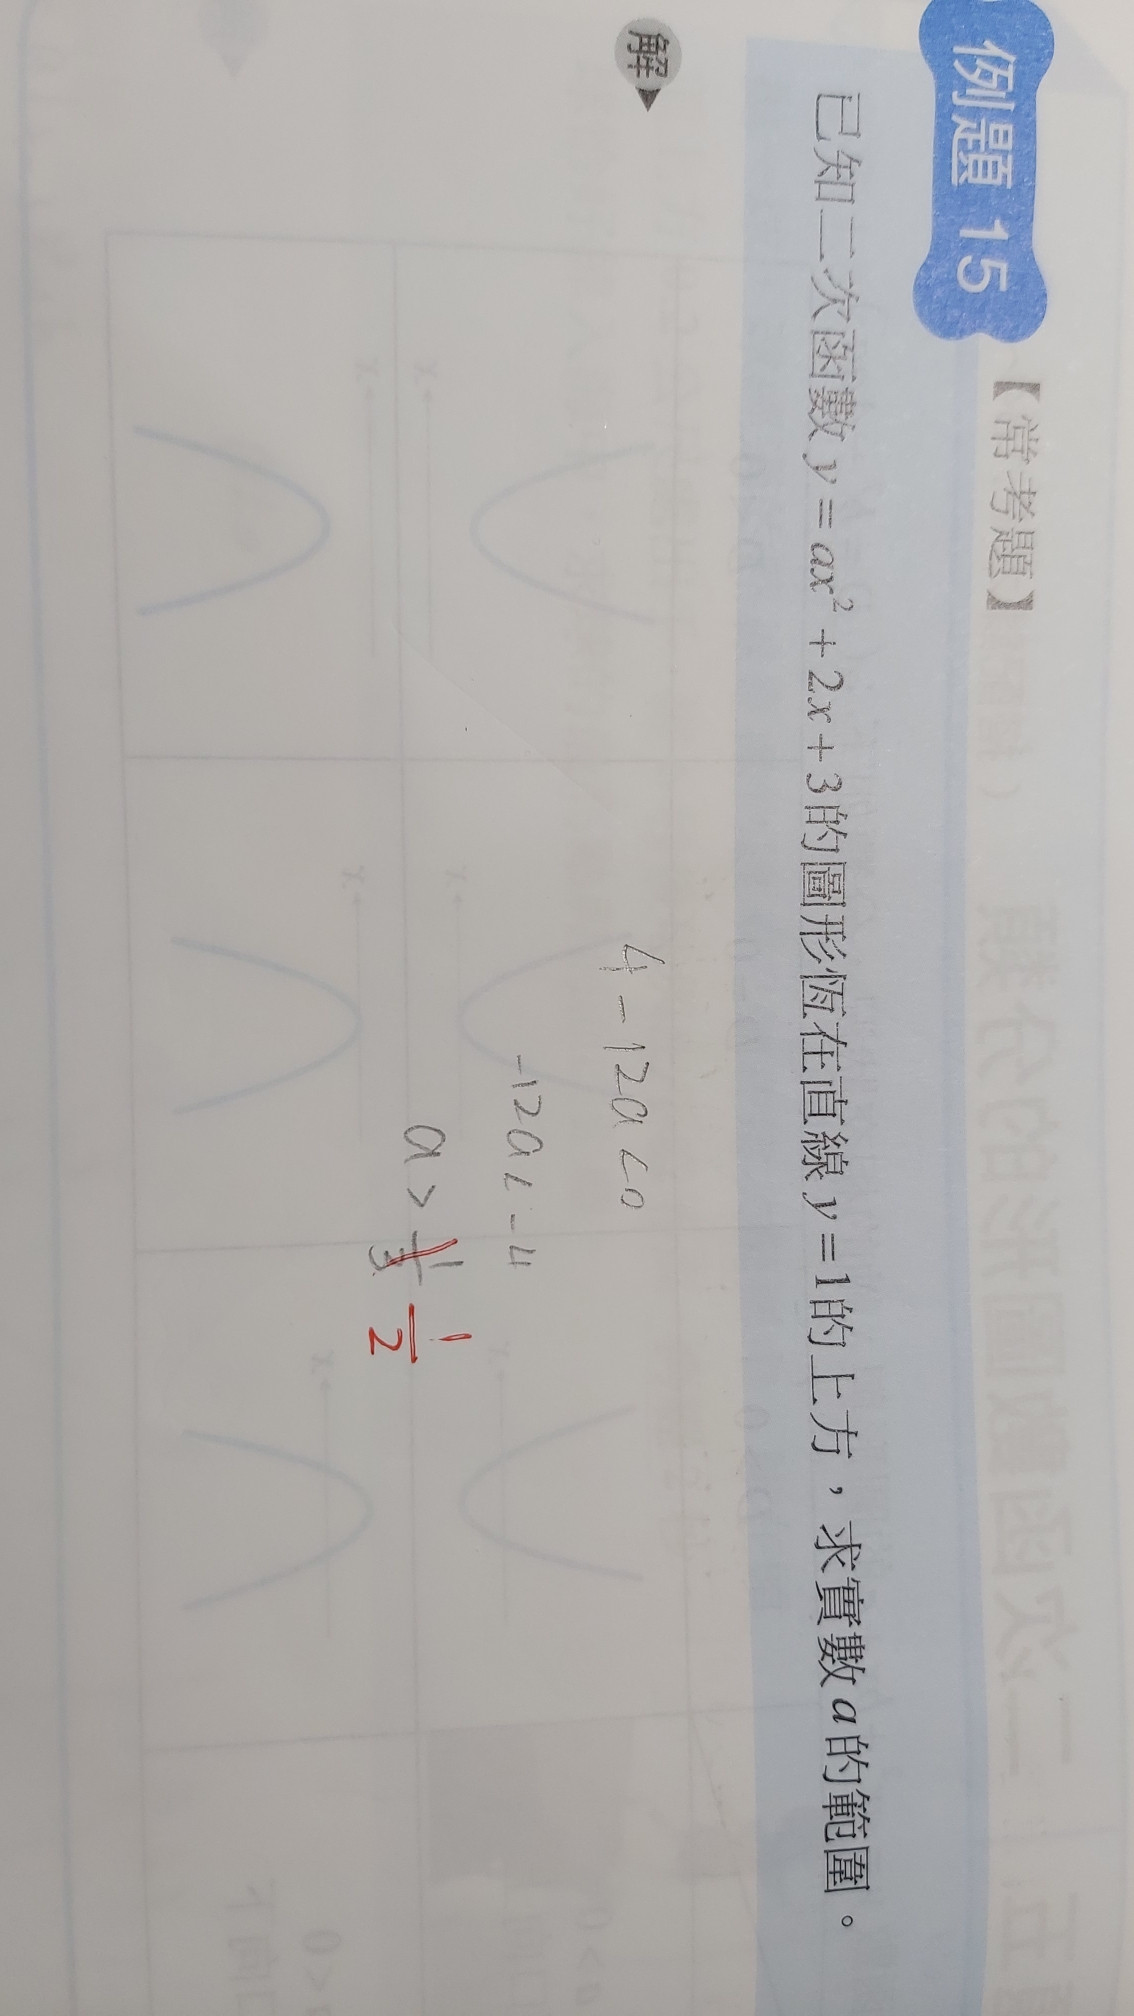 例題 15
【常考題】
已知二次函數 y = ax² + 2x + 3 的圖形恆在直線 y = 1 的上方，求實數 a 的範圍。
解
4 - 12a < 0
-12a < -4
a > 1/3 1/2